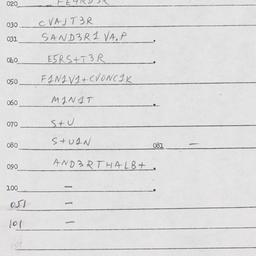 020 FE4RD3R
030 CVAJT3R
031 SAND3R1 VA,P .
040 E5RS+T3R
050 F1N1V1+CVONC1K
060 M1N1T .
070 S+U
080 S+U1N 081 –
090 AND3RTHALB+ .
100 – .
051 –
101 –